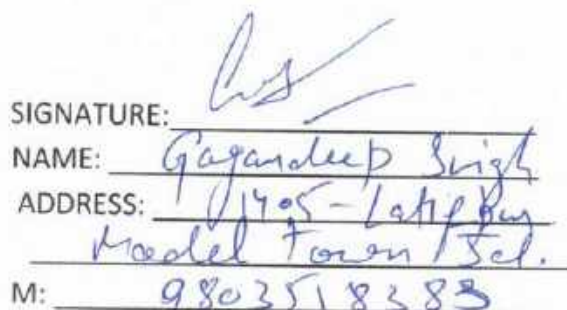 SIGNATURE:
NAME: Gagandeep Singh
ADDRESS: 1405-Latifpur
Model Town Jal.
M: 9803518383